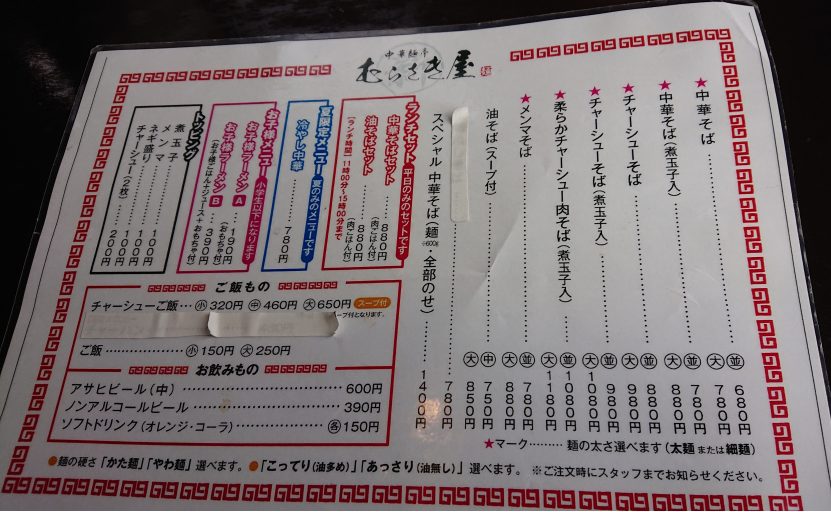 中華麺亭
むらさき屋
★中華そば……並680円 大780円
★中華そば(煮玉子入)……並780円 大880円
★チャーシューそば……並880円 大980円
★チャーシューそば(煮玉子入)……並980円 大1080円
★柔らかチャーシュー肉そば(煮玉子入)……並1080円 大1180円
★メンマそば……並780円 大880円
油そば(スープ付)……中750円 大850円
……780円
スペシャル 中華そば(麺600g・全部のせ)……1400円
★マーク………麺の太さ選べます(太麺または細麺)
ランチセット 平日のみのセットです
中華そばセット……880円(肉ごはん付)
油そばセット……880円(肉ごはん付)
【ランチ時間】11時00分〜15時00分まで
夏限定メニュー 夏のみのメニューです
冷やし中華……780円
お子様メニュー 小学生以下になります
お子様ラーメン A……190円(おもちゃ付)
お子様ラーメン B……390円
(お子様ごはん+ジュース+おもちゃ付)
トッピング
煮玉子……100円
メンマ……100円
ネギ盛り……100円
チャーシュー(2枚)……200円
ご飯もの
チャーシューご飯…小320円 中460円 大650円 スープ付
ご飯………………小150円 大250円
お飲みもの
アサヒビール(中)………………600円
ノンアルコールビール………………390円
ソフトドリンク(オレンジ・コーラ)………各150円
●麺の硬さ「かた麺」「やわ麺」選べます。 ●「こってり(油多め)」「あっさり(油無し)」選べます。 ※ご注文時にスタッフまでお知らせください。